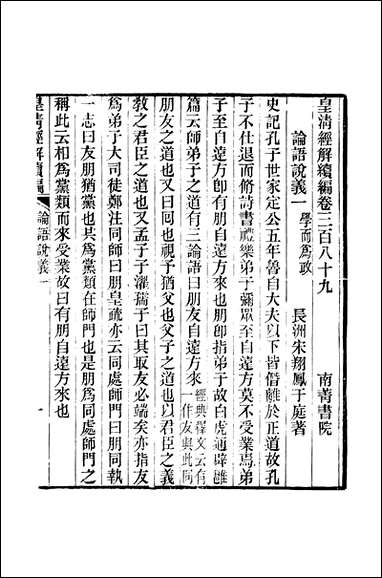 皇清經解續編卷三百八十九 南菁書院
論語說義一 學而爲政 長洲宋翔鳳于庭著
史記孔子世家定公五年魯自大夫以下皆僭離於正道故孔
子不仕退而脩詩書禮樂弟子彌眾至自遠方莫不受業焉弟
子至自遠方卽有朋自遠方來也朋卽指弟子故白虎通辟雝
篇云師弟子之道有三論語曰朋友自遠方來 經典釋文云有一作友與此同
朋友之道也又曰回也視予猶父也父子之道也以君臣之義
敎之君臣之道也孟子子濯孺子曰其取友必端矣亦指友
爲弟子大司徒鄭注同師曰朋皇疏亦云同處師門曰朋同執
一志曰友朋猶黨也共爲黨類在師門也是朋爲同處師門之
稱此云相爲黨類而來受業故曰有朋自遠方來也
皇清經解續編 論語說義一 一